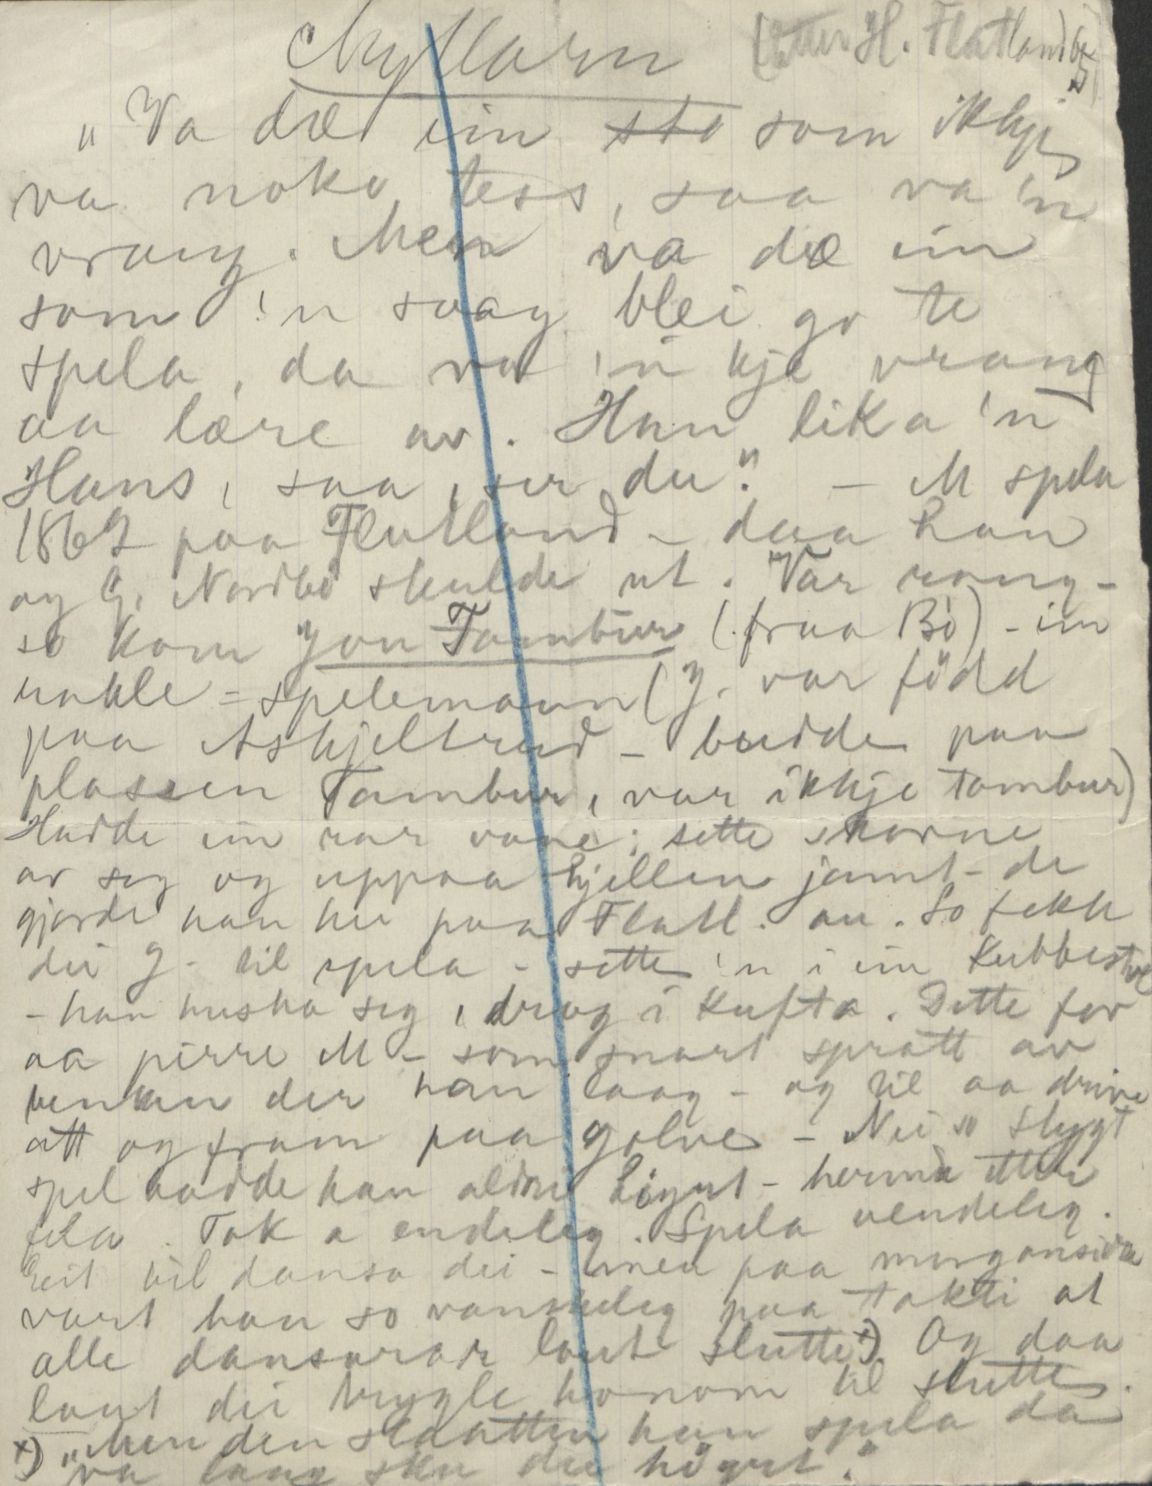 Myllarn (Etter H. Flatland
"Va dæ ein som ikkje
va noko tess, saa va 'n
vrang. Men va dæ ein
som 'n saag blei go te
spela, da va 'n kje vrang
aa lære av. Han lika 'n
Hans, saa, ser du." – M spela
1862 paa Flatland – daa han
og G. Nordbø skulde ut. Var rang-
so kom Jon Tambur (fraa Bø) – ein
urakle = spelemann (J. var fødd
paa Askjeltrud – budde paa
plassen Tambur, var ikkje tambur)
Hadde ein rar vane: sette skorne
av seg og uppaa hjellen jamt – de
gjorde han her paa Flatl. au. So fekk
dei J. til spela – sette 'n i ein kubbestol
– han huska seg, drog i kufta. Dette for
aa pirre M – som snart spratt av
benken der han laag – og til aa drive
att og fram paa golve – Nei so stygt
spel hadde han aldri høyrt – herma etter
fela. Tok a endeleg. Spela uendeleg.
Beit til dansa dei – men paa morgonsida
vart han so vanskeleg paa takti at
alle dansarar laut slutte x) Og daa
laut dei trygle honom til slutte.
x) "Men den slaatten han spela da
va laang sku du høyrt."